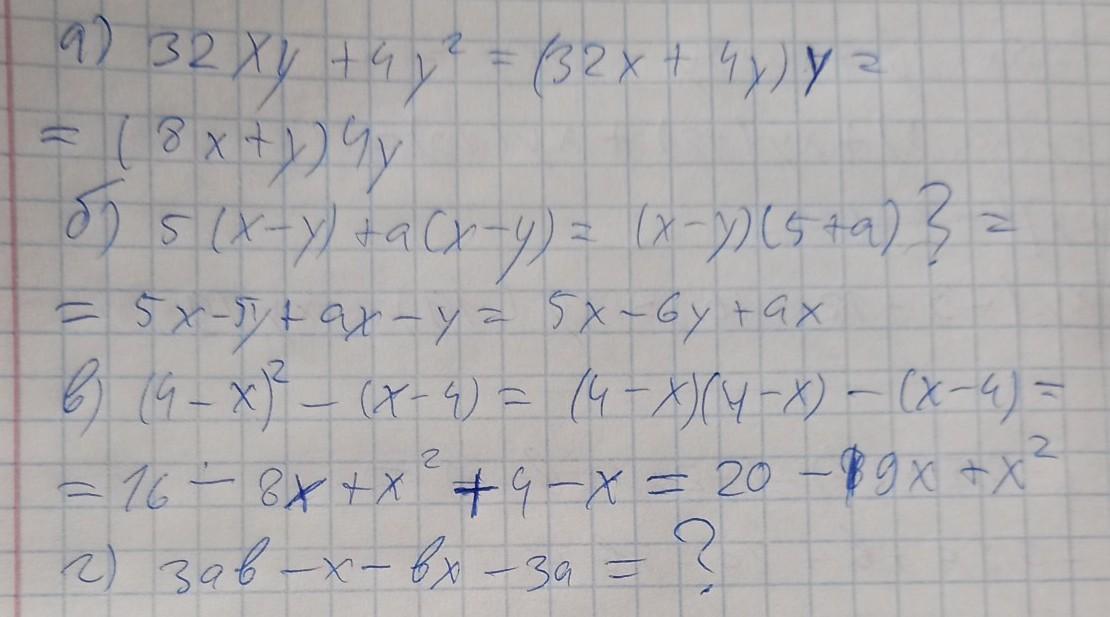 а) 32xy + 4y² = (32x + 4y)y =
= (8x+y)4y
б) 5(x-y)+a(x-y) = (x-y)(5+a)? =
= 5x-5y+ax-y = 5x-6y+ax
в) (4-x)² - (x-4) = (4-x)(4-x) - (x-4) =
= 16 - 8x + x² + 4 - x = 20 - 9x + x²
г) 3ab - x - bx - 3a = ?